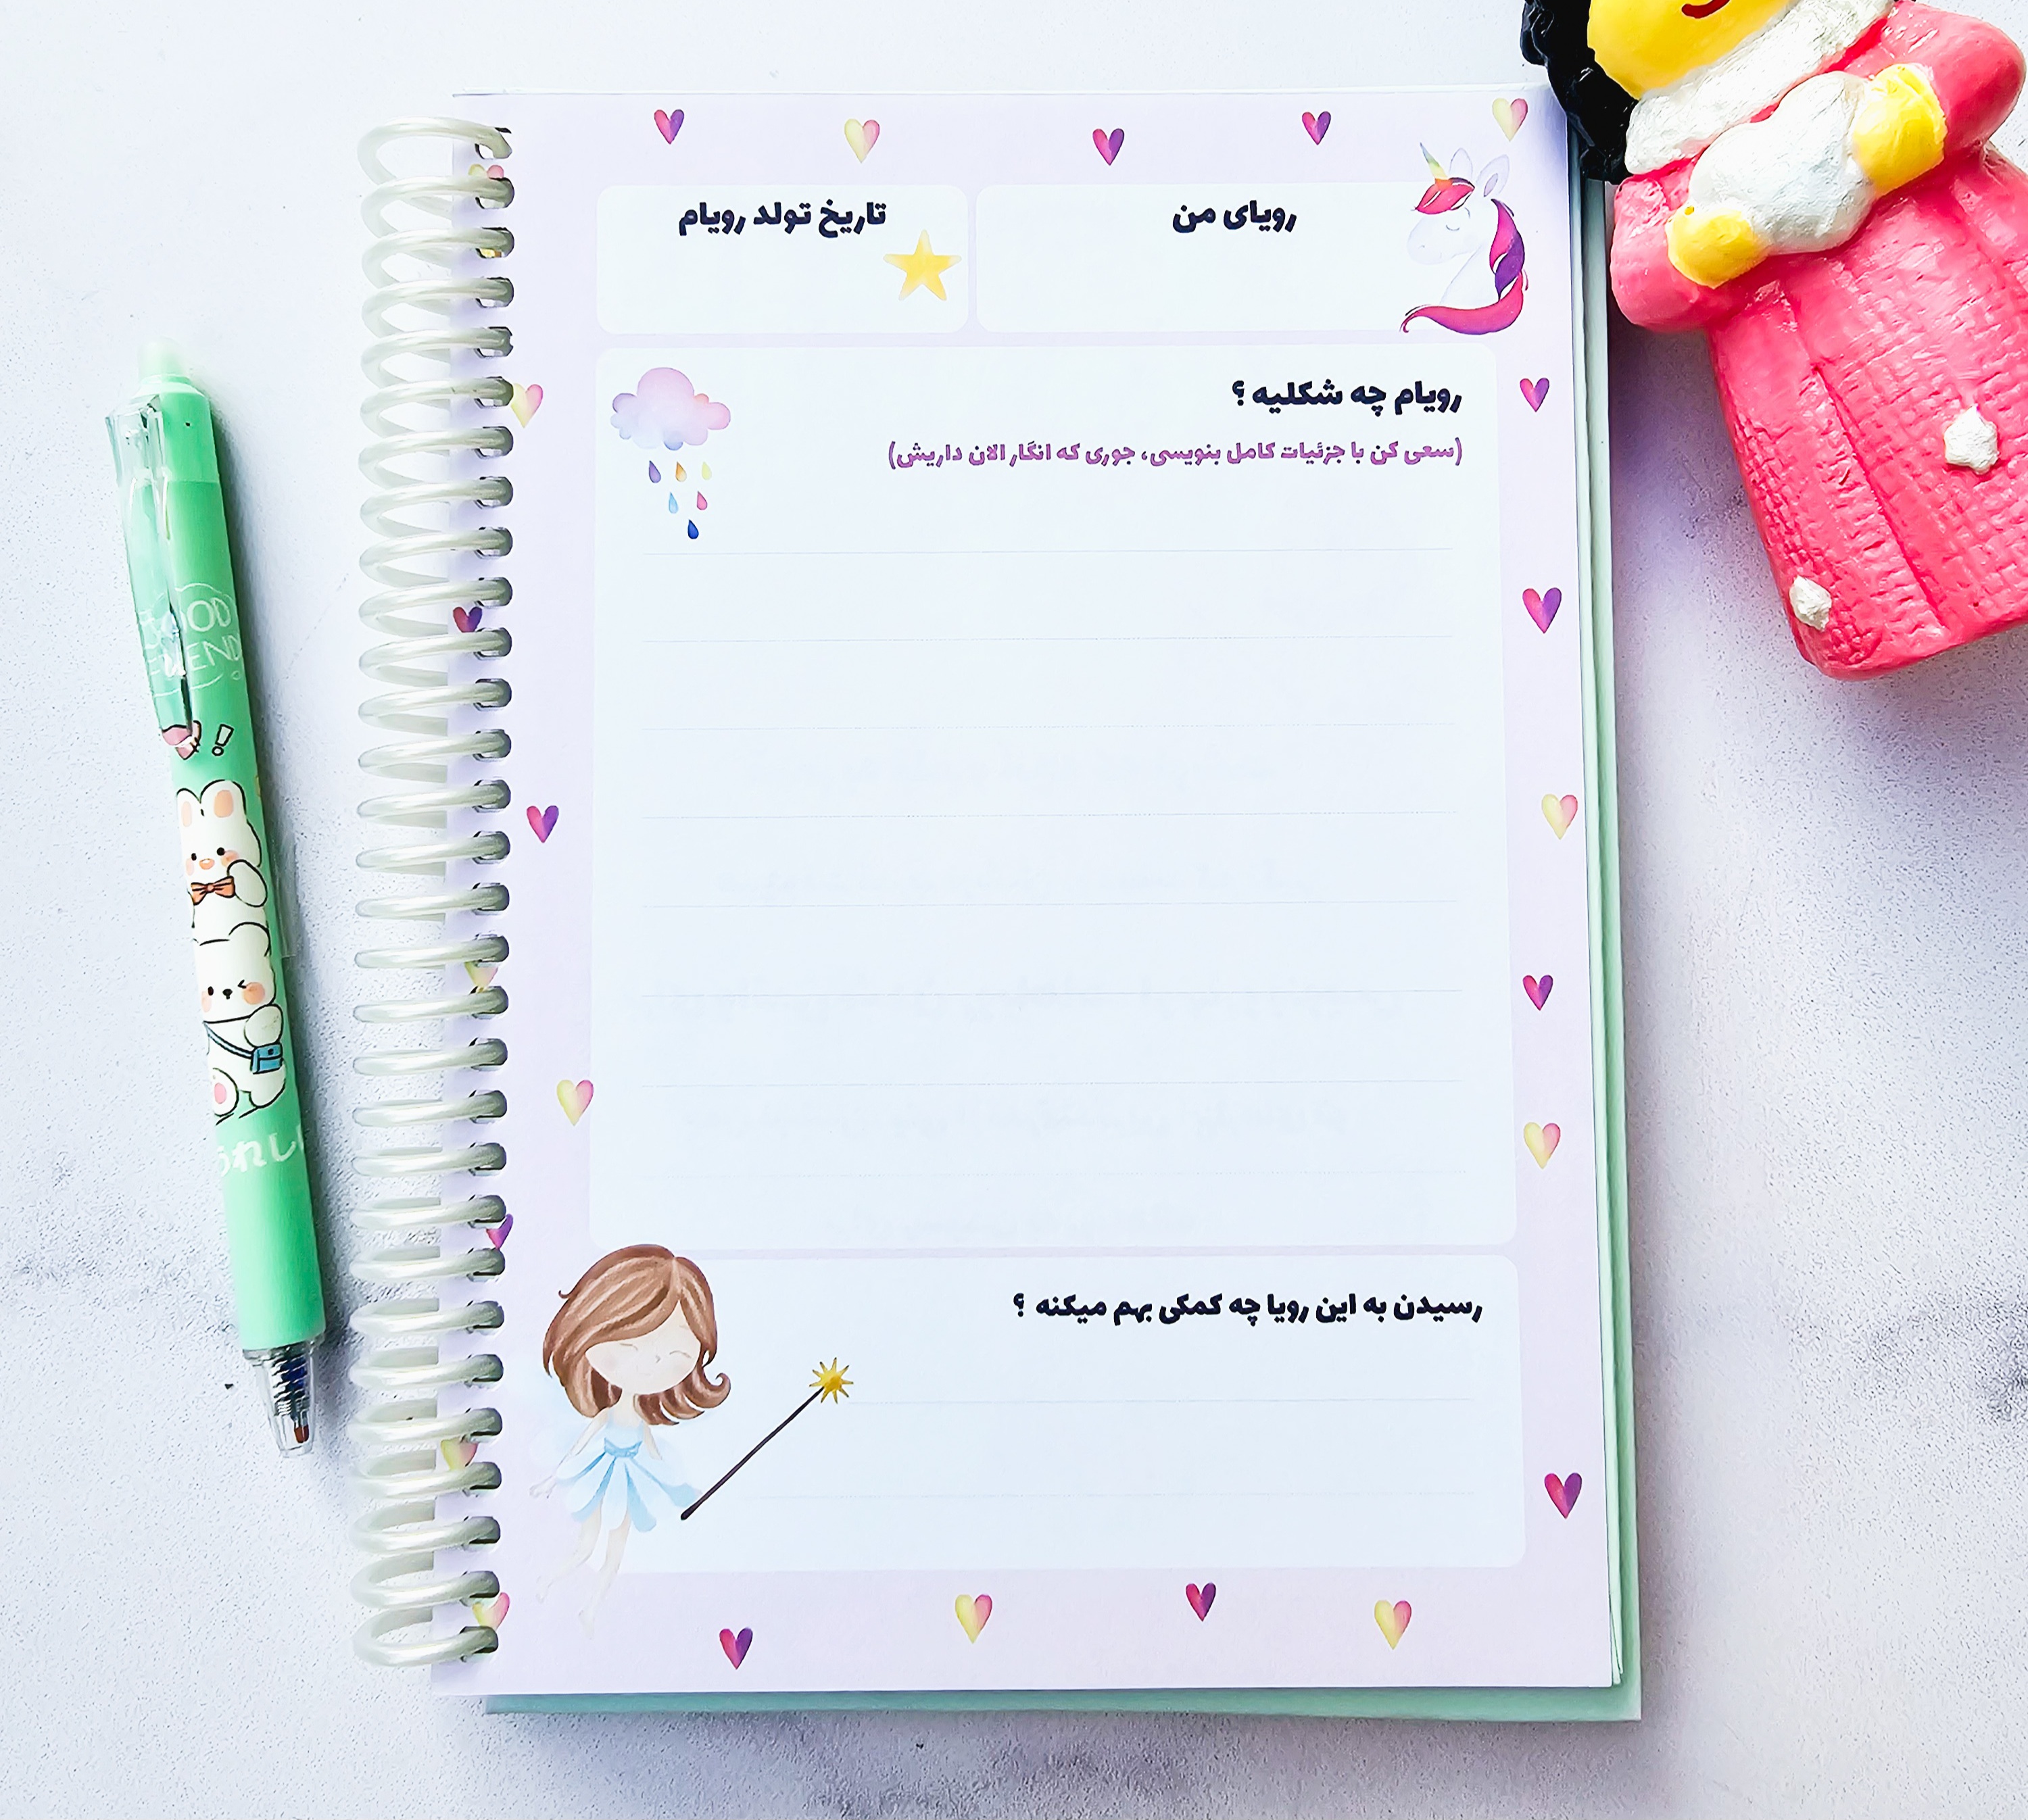 رویای من
تاریخ تولد رویام
رویام چه شکلیه ؟
(سعی کن با جزئیات کامل بنویسی، جوری که انگار الان داریش)
رسیدن به این رویا چه کمکی بهم میکنه ؟
れし